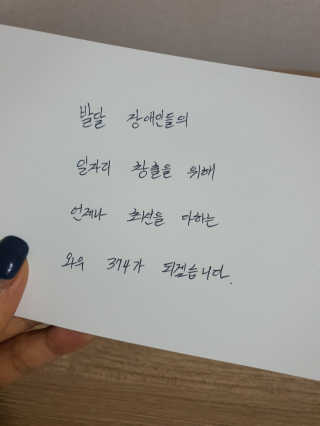 발달 장애인들의
일자리 창출을 위해
언제나 최선을 다하는
와우 374가 되겠습니다.